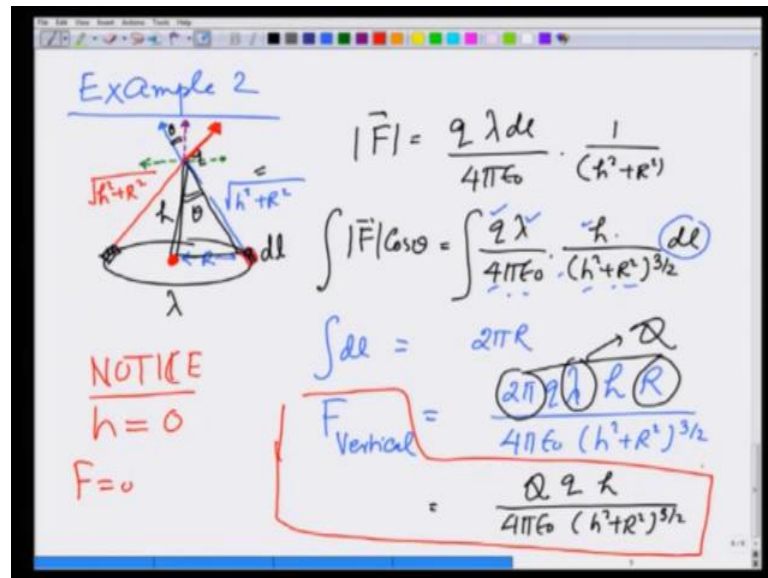 File Edit View Insert Actions Tools Help
Example 2
|F⃗| = q λ dl / 4πε₀ · 1 / (h²+R²)
θ
q
√h²+R²
h
θ
= √h²+R²
R
dl
λ
∫ |F⃗| Cosθ = ∫ q λ / 4πε₀ · h / (h²+R²)^3/2 dl
∫ dl = 2πR
Q
F Vertical = 2π q λ h R / 4πε₀ (h²+R²)^3/2
= Q q h / 4πε₀ (h²+R²)^3/2
NOTICE
h = 0
F = 0